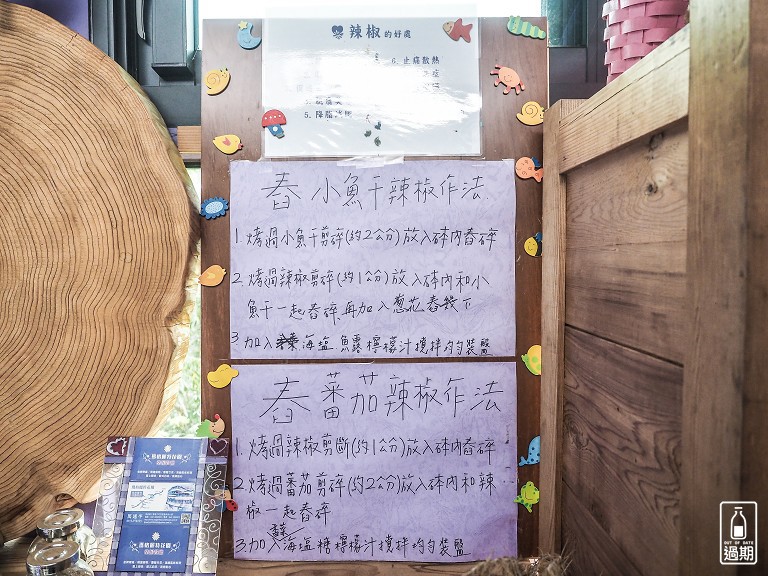 辣椒的好處
6. 止痛散熱
5. 降脂減肥
舂小魚干辣椒作法
1. 烤過小魚干剪碎(約2公分)放入砵內舂碎
2. 烤過辣椒剪碎(約1公分)放入砵內和小
魚干一起舂碎,再加入蔥花舂幾下
3. 加入海塩魚露檸檬汁攪拌均勻裝盤
舂蕃茄辣椒作法
1. 烤過辣椒剪斷(約1公分)放入砵內舂碎
2. 烤過蕃茄剪碎(約2公分)放入砵內和辣
椒一起舂碎
3. 加入海塩糖檸檬汁攪拌均勻裝盤
瑪格麗特花園
瑪格麗特花園
OUT OF DATE
過期